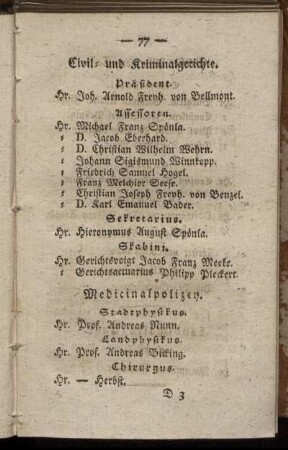 — 77 —
Civil- und Kriminalgerichte.
Präsident.
Hr. Joh. Arnold Freyh. von Bellmont.
Assessoren.
Hr. Michael Franz Spönla.
= D. Jacob Eberhard.
= D. Christian Wilhelm Wehrn.
= Johann Sigismund Winnkopp.
= Friedrich Samuel Hogel.
= Franz Melchier Seese.
= Christian Joseph Freyh. von Benzel.
= D. Karl Emanuel Bader.
Sekretarius.
Hr. Hieronymus August Spönla.
Skabini.
Hr. Gerichtsvoigt Jacob Franz Meeke.
= Gerichtsactuarius Philipp Pleckert.
Medicinalpolizey.
Stadtphysikus.
Hr. Prof. Andreas Nunn.
Landphysikus.
Hr. Prof. Andreas Bicking.
Chirurgus.
Hr. — Herbst.
D 3